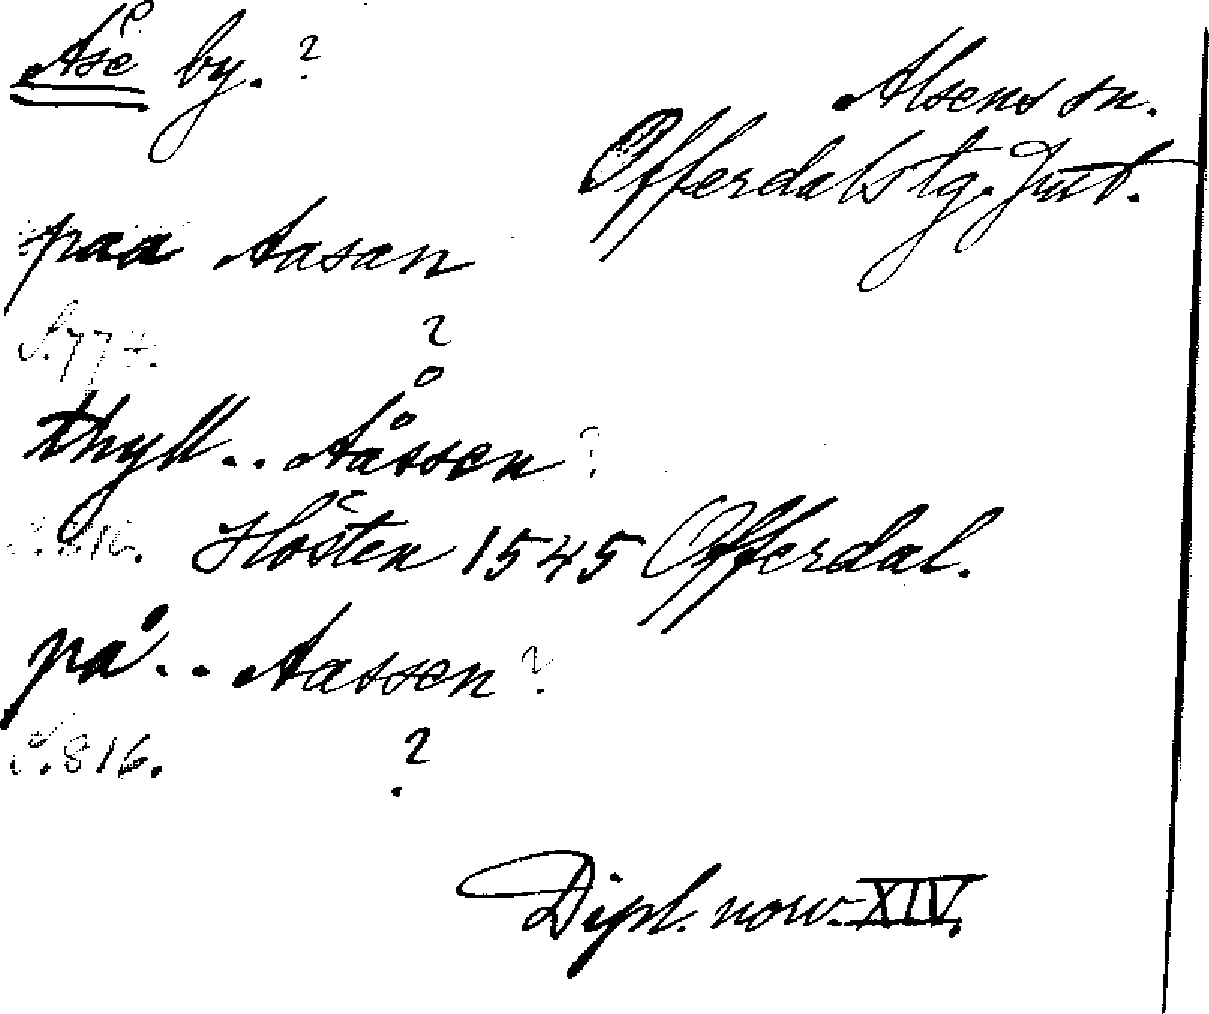 Åse by. ?
Alsens sn.
Offerdals tg. Jmt.
paa Aasan
S. 774.
?
thyll .. Aåssen ?
S. 816. Hösten 1545 Offerdal.
på .. Aassen ?
S. 816. ?
Dipl. norv. XIV.